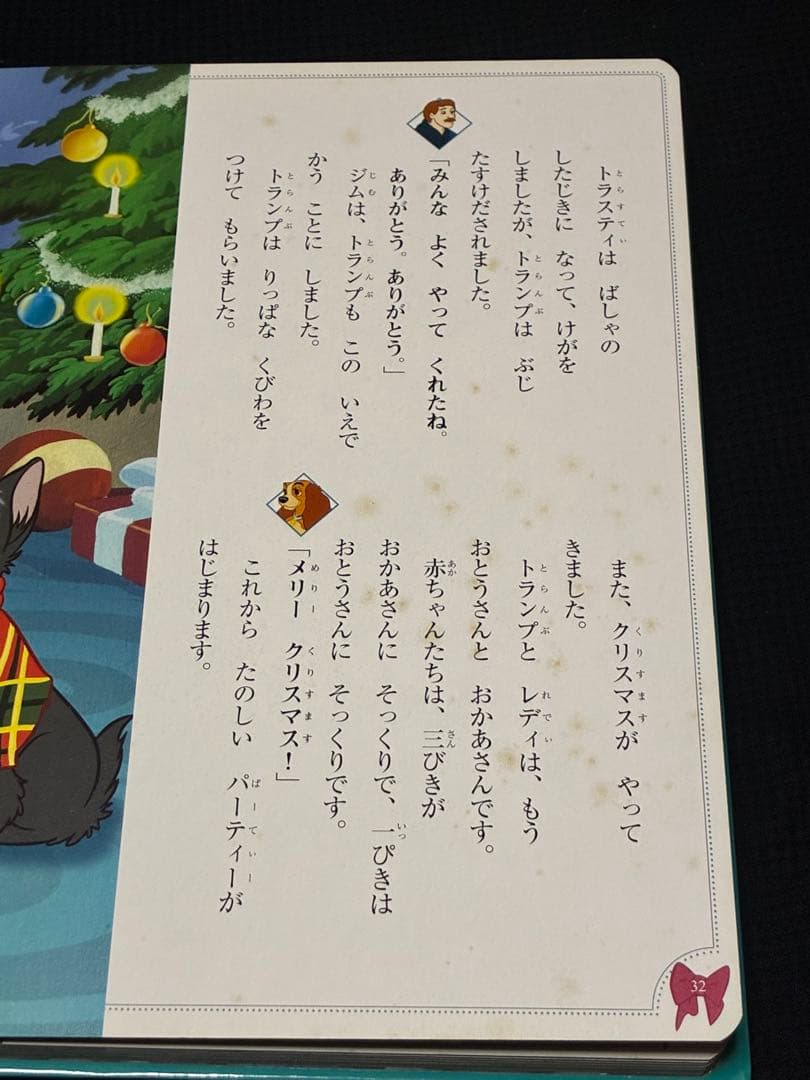 トラスティは ばしゃの
したじきに なって、けがを
しましたが、トランプは ぶじ
たすけだされました。
「みんな よく やって くれたね。
ありがとう。ありがとう。」
ジムは、トランプも この いえで
かう ことに しました。
トランプは りっぱな くびわを
つけて もらいました。
また、クリスマスが やって
きました。
トランプと レディは、もう
おとうさんと おかあさんです。
赤ちゃんたちは、三びきが
おかあさんに そっくりで、一ぴきは
おとうさんに そっくりです。
「メリー クリスマス!」
これから たのしい パーティーが
はじまります。
32